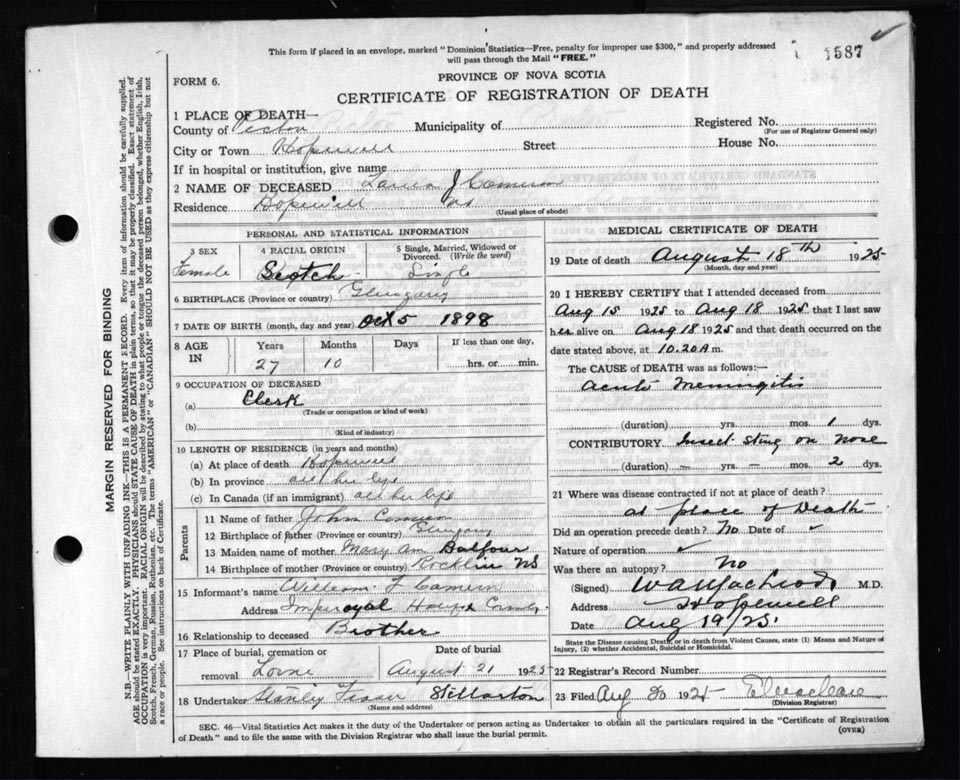 This form if placed in an envelope, marked "Dominion Statistics—Free, penalty for improper use $300," and properly addressed
will pass through the Mail "FREE."
1587
FORM 6.
PROVINCE OF NOVA SCOTIA
CERTIFICATE OF REGISTRATION OF DEATH
1 PLACE OF DEATH—
County of Pictou Municipality of Registered No.
(For use of Registrar General only)
City or Town Hopewell Street House No.
If in hospital or institution, give name
2 NAME OF DECEASED J Cameron
Residence Hopewell NS
(Usual place of abode)
PERSONAL AND STATISTICAL INFORMATION
3 SEX 4 RACIAL ORIGIN 5 Single, Married, Widowed or Divorced. (Write the word)
Female Scotch Single
6 BIRTHPLACE (Province or country) Glengarry
7 DATE OF BIRTH (month, day and year) Oct 5 1898
8 AGE IN Years Months Days If less than one day,
27 10 hrs. or min.
9 OCCUPATION OF DECEASED
(a) Clerk
(Trade or occupation or kind of work)
(b)
(Kind of industry)
10 LENGTH OF RESIDENCE (in years and months)
(a) At place of death Hopewell
(b) In province all her life
(c) In Canada (if an immigrant) all her life
Parents
11 Name of father John Cameron
12 Birthplace of father (Province or country) Glengarry
13 Maiden name of mother Mary Ann Balfour
14 Birthplace of mother (Province or country) Rocklin NS
15 Informant's name William F Cameron
Address Imperoyal Halifax
16 Relationship to deceased Brother
17 Place of burial, cremation or removal Date of burial
Lorne August 21 1925
18 Undertaker Stanley Fraser Stellarton
(Name and address)
MEDICAL CERTIFICATE OF DEATH
19 Date of death August 18th 1925
(Month, day and year)
20 I HEREBY CERTIFY that I attended deceased from
Aug 15 1925 to Aug 18 1925 that I last saw
her alive on Aug 18 1925 and that death occurred on
date stated above, at 10.20 A m.
The CAUSE of DEATH was as follows:—
Acute Meningitis
(duration) yrs. mos. 1 dys.
CONTRIBUTORY Insect sting on nose
(duration) — yrs. — mos. 2 dys.
21 Where was disease contracted if not at place of death?
at place of Death
Did an operation precede death? No Date of ✓
Nature of operation ✓
Was there an autopsy? No
(Signed) M.D.
Address Hopewell
Date Aug 19/25
State the Disease causing Death, or in death from Violent Causes, state (1) Means and Nature of
Injury, (2) whether Accidental, Suicidal or Homicidal.
22 Registrar's Record Number
23 Filed Aug 20 1925
(Division Registrar)
SEC. 46—Vital Statistics Act makes it the duty of the Undertaker or person acting as Undertaker to obtain all the particulars required in the "Certificate of Registration
of Death" and to file the same with the Division Registrar who shall issue the burial permit.
(OVER)
MARGIN RESERVED FOR BINDING
N.B.—WRITE PLAINLY WITH UNFADING INK—THIS IS A PERMANENT RECORD. Every item of information should be carefully supplied.
AGE should be stated EXACTLY. PHYSICIANS should STATE CAUSE OF DEATH in plain terms, so that it may be properly classified. Exact statement of
OCCUPATION is very important. RACIAL ORIGIN will be described by stating to what people or tongue the deceased person belonged, whether English, Irish,
Scotch, French, German, Russian, Ruthenian, etc. The terms "AMERICAN" or "CANADIAN" SHOULD NOT BE USED as they express citizenship but not
a race or people. See instructions on back of Certificate.